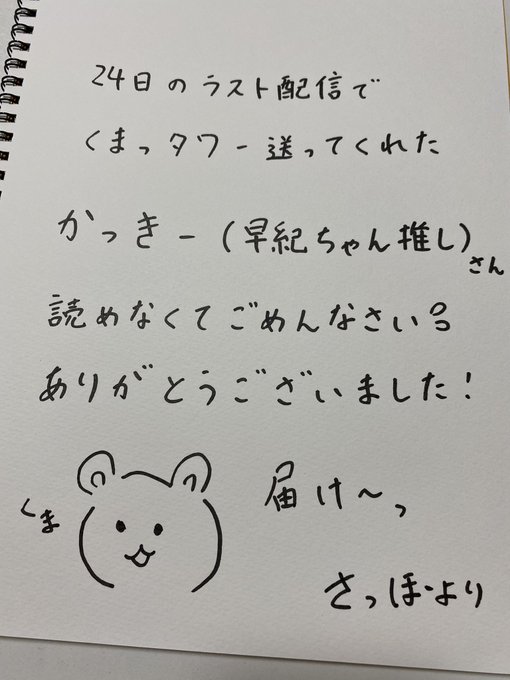 24日のラスト配信で
くまっタワー送ってくれた
かっきー(早紀ちゃん推し)さん
読めなくてごめんなさい
ありがとうございました!
くま
届け〜っ
さっほーより